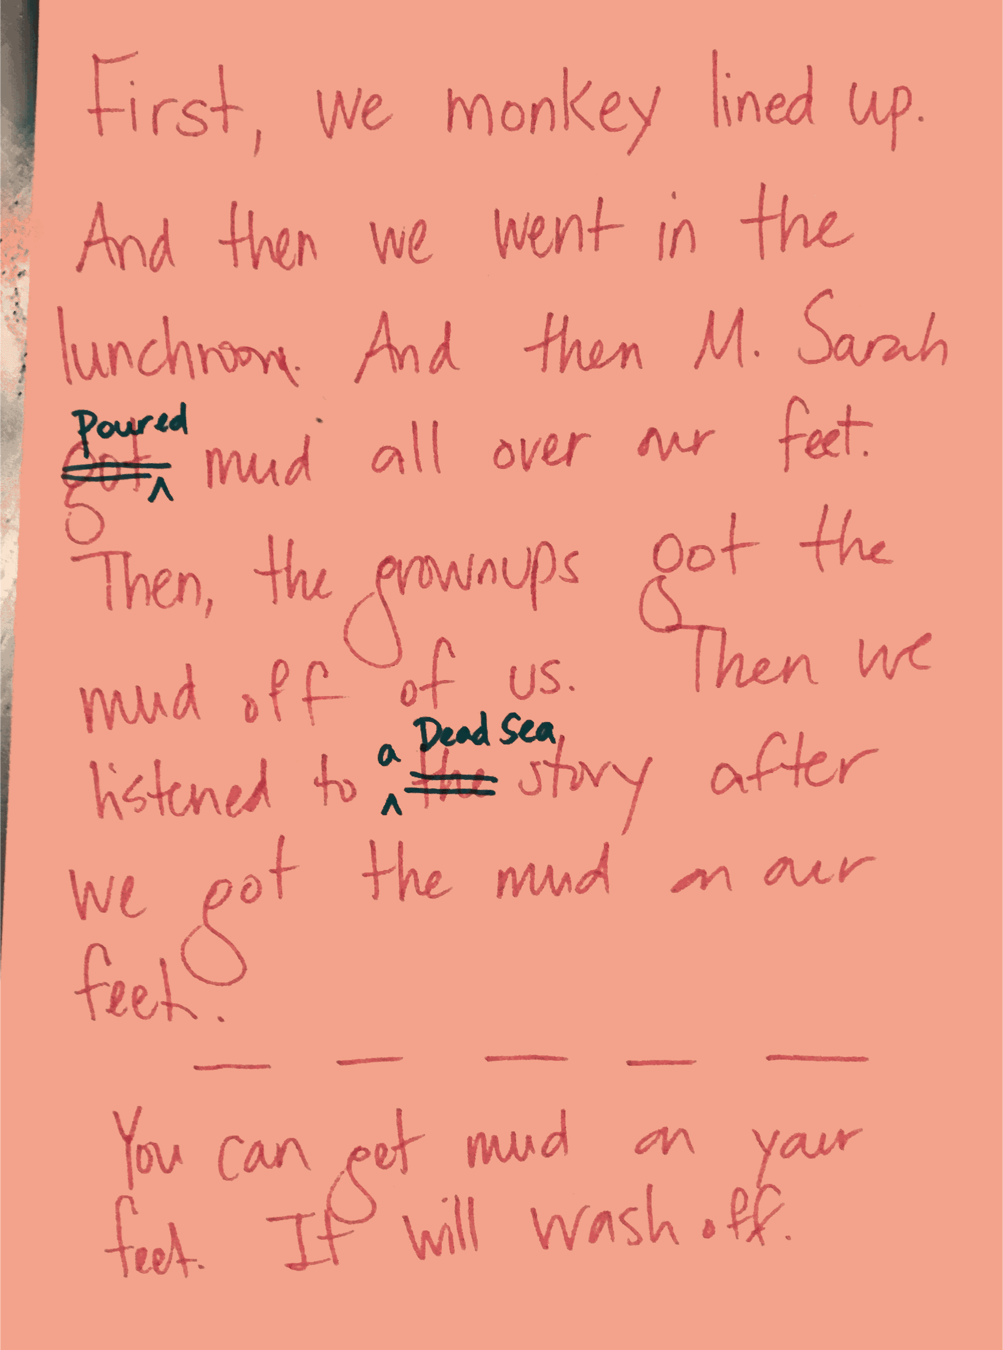 First, we monkey lined up.
And then we went in the
lunchroom. And then M. Sarah
Poured
got mud all over our feet.
Then, the grownups got the
mud off of us. Then we
a Dead Sea
listened to the story after
we got the mud on our
feet.
You can get mud on your
feet. It will wash off.